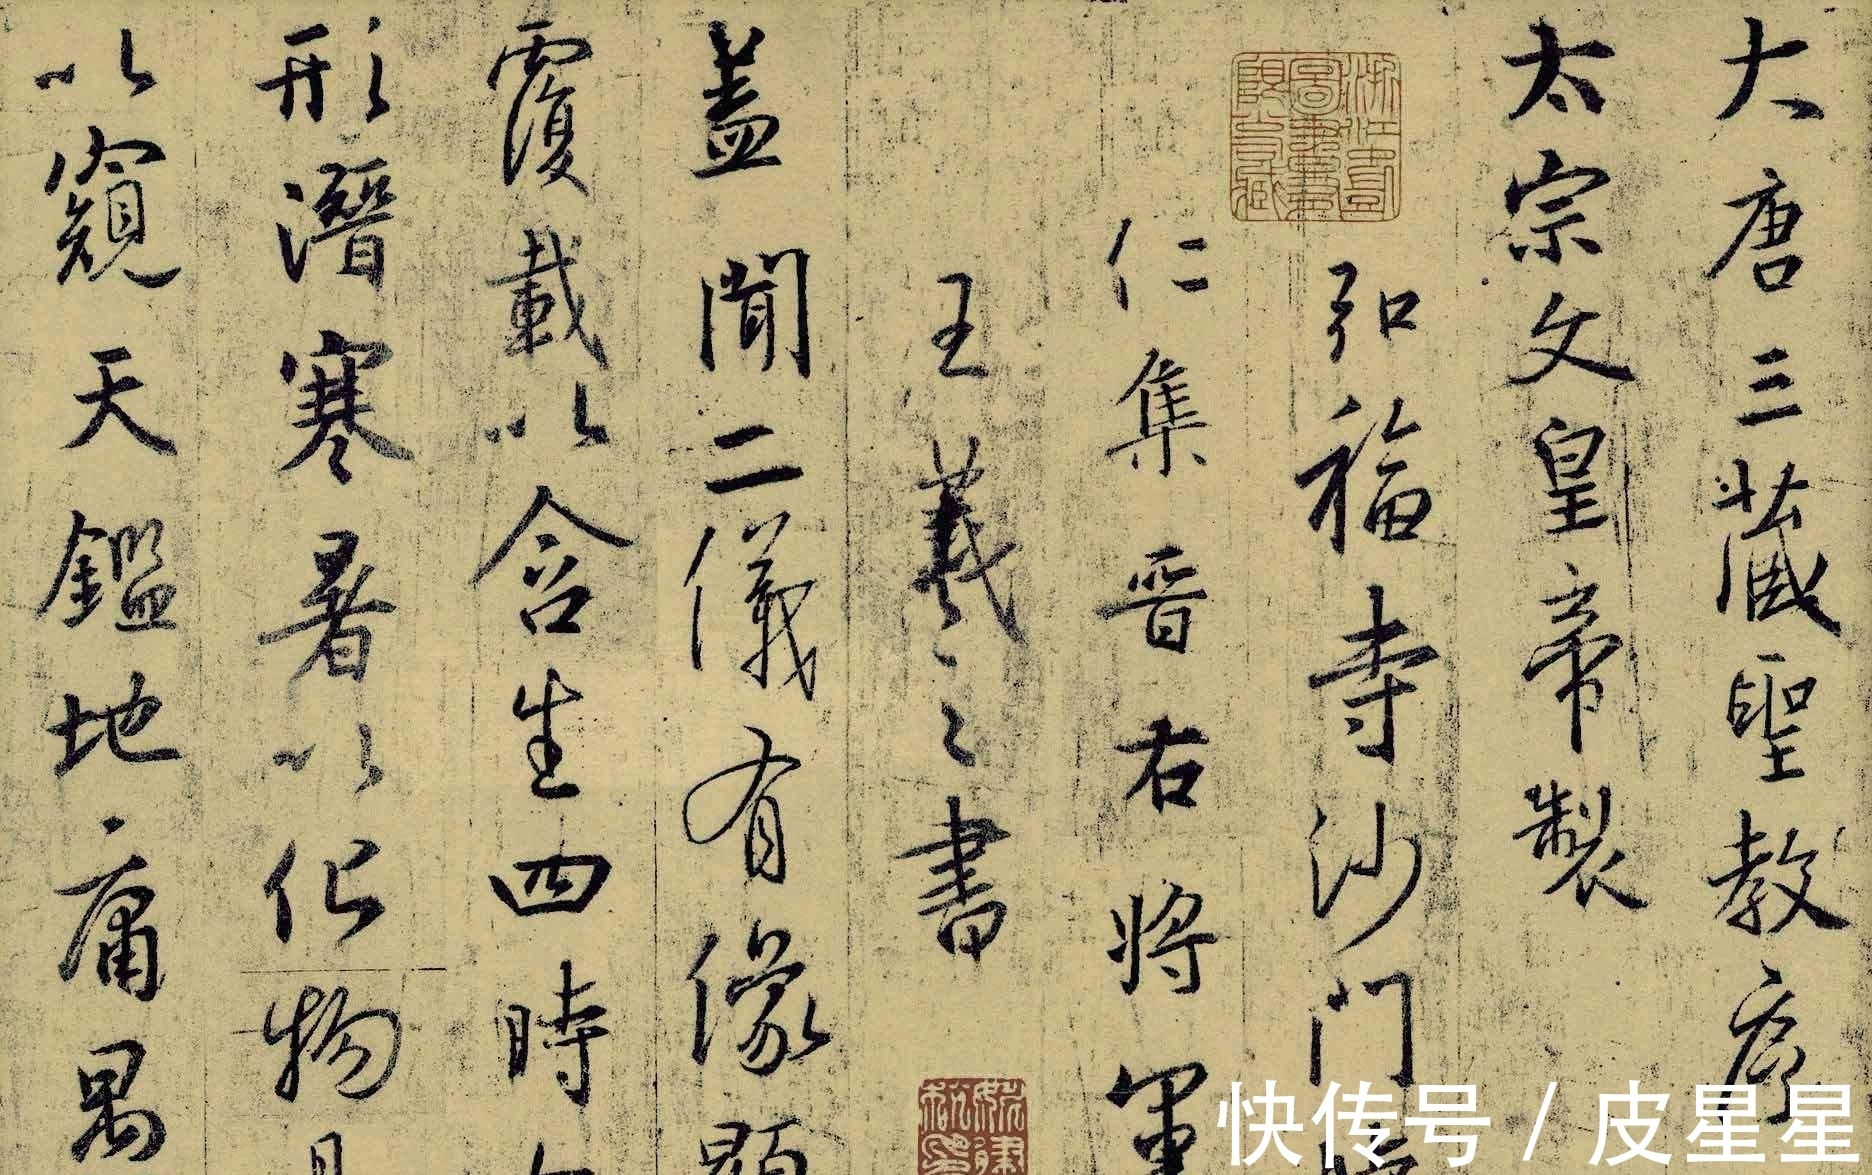 大唐三藏聖教序
太宗文皇帝製
弘福寺沙門
仁集晉右將軍
王羲之書
蓋聞二儀有像顯
覆載以含生四時
形潛寒暑以化物
以窺天鑑地庸愚
快传号 / 皮星星